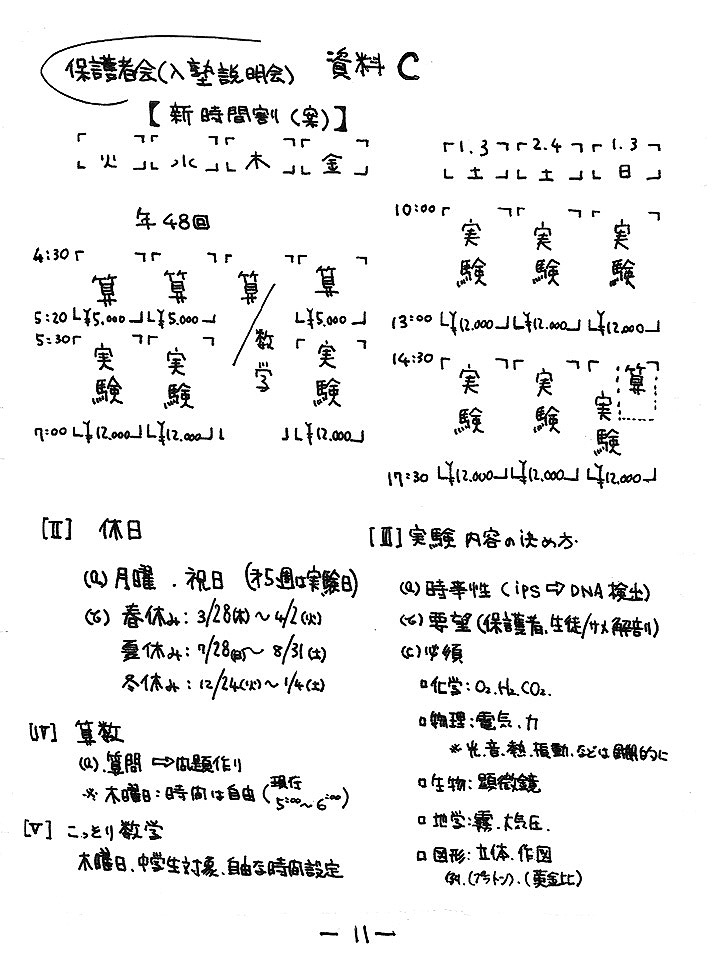 保護者会(入塾説明会) 資料C
【新時間割(案)】
火 水 木 金
年48回
4:30
算 算 算 算
5:20 ¥5,000 ¥5,000 ¥5,000
5:30
実験 実験 数学 実験
7:00 ¥12,000 ¥12,000 ¥12,000
1.3 2.4 1.3
土 土 日
10:00
実験 実験 実験
13:00 ¥12,000 ¥12,000 ¥12,000
14:30
実験 実験 実験 算
17:30 ¥12,000 ¥12,000 ¥12,000
[II] 休日
(a) 月曜.祝日 (才5週は実験日)
(b) 春休み:3/28(木)〜4/2(火)
夏休み:7/28(日)〜8/31(土)
冬休み:12/24(火)〜1/4(土)
[III] 実験内容の決め方
(a) 時事性(ips⇨DNA検出)
(b) 要望(保護者.生徒/サメ解剖)
(c) 必須
□化学:O2.H2.CO2.
□物理:電気.力
※光.音.熱.振動.などは倒的に
□生物:顕微鏡
□地学:霧.大気圧.
□図形:立体.作図
例.(プラトン).(黄金比)
[IV] 算数
(a).質問⇨問題作り
※木曜日:時間は自由(現在5:00〜6:00)
[V] こっとり数学
木曜日.中学生対象.自由な時間設定
— 11 —